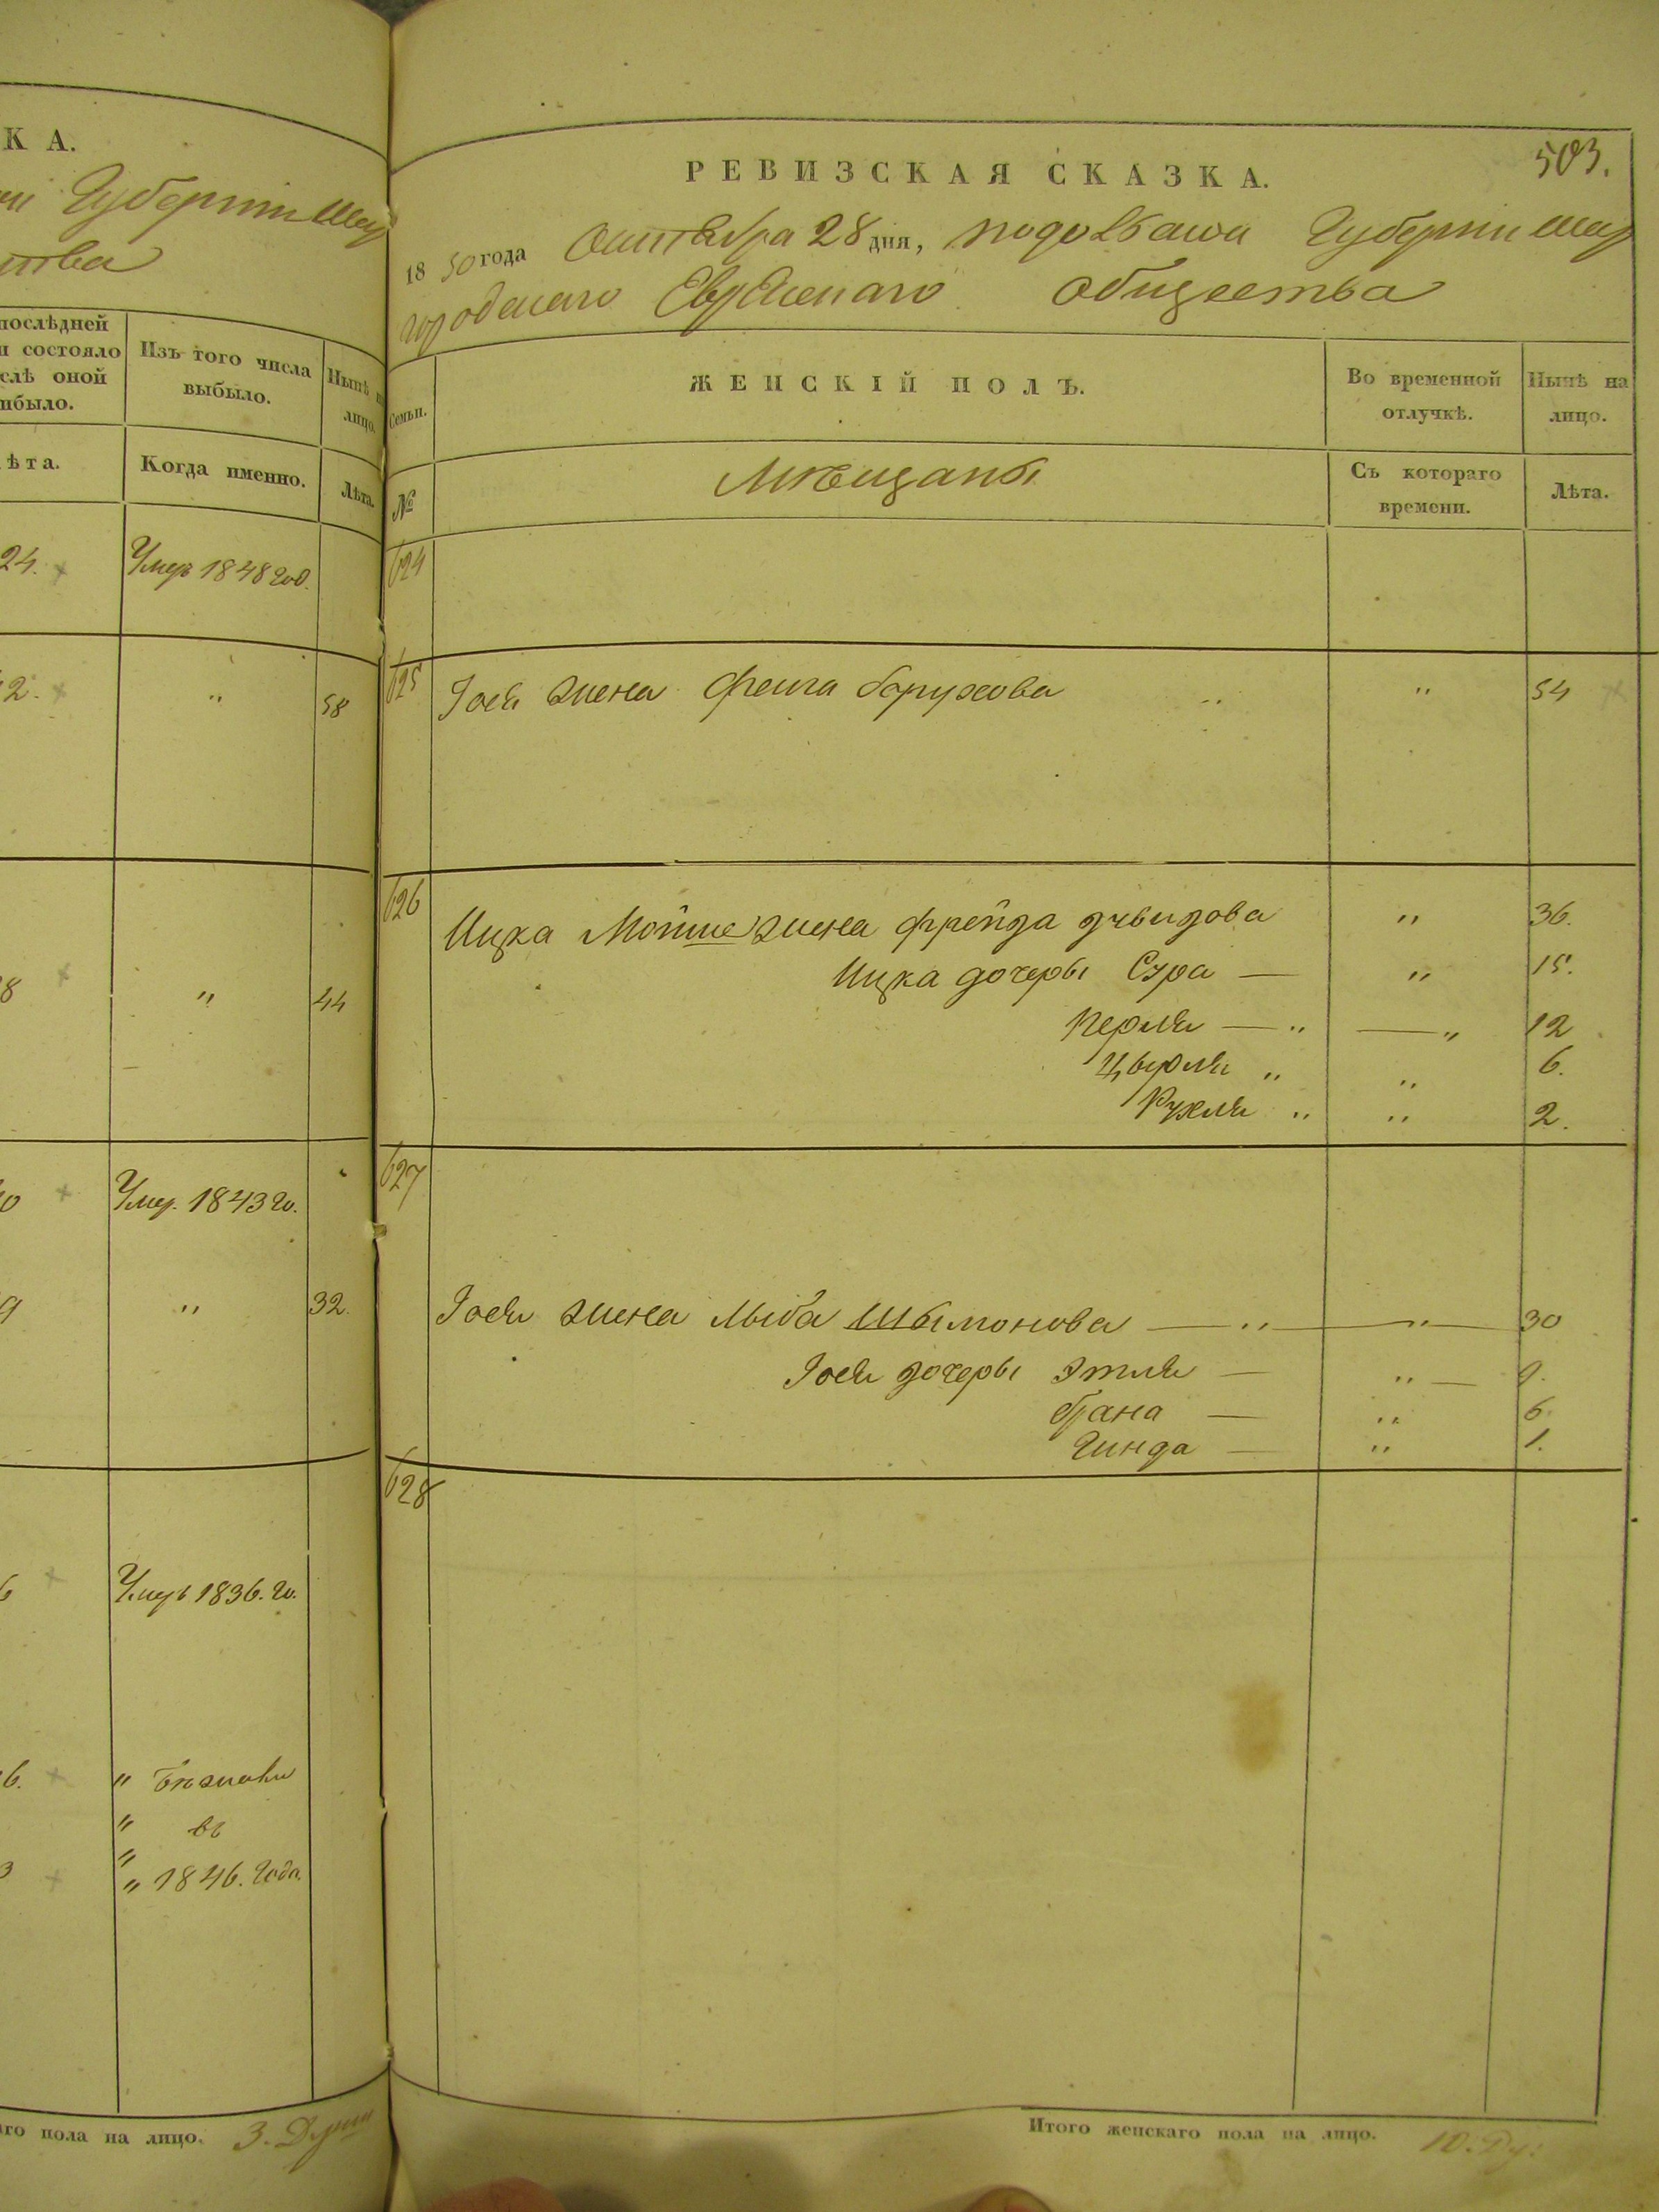 К А.
Губернии Шар
ства
послѣдней
и состояло
слѣ оной
ибыло.
Изъ того числа
выбыло.
Нынѣ на
лицо.
ѣта.
Когда именно.
Лѣта.
24.
Умеръ 1848 год.
2.
"
58
8
"
44
0
Умер. 1843 го.
9
"
32.
6
Умеръ 1836. го.
6.
"
"
въ
"
3
" 1846. года.
аго пола на лицо. 3. Души
503.
РЕВИЗСКАЯ СКАЗКА.
1850 года Октября 28 дня, Подольской Губернии Шар
городскаго Еврейскаго Общества
Семьи.
ЖЕНСКІЙ ПОЛЪ.
Во временной
отлучкѣ.
Нынѣ на
лицо.
№
Мѣщаны
Съ котораго
времени.
Лѣта.
624
625 Госи жена Фейга Борухова " " 54
626 Ицка Мошие жена Фрейда Дувидова " 36.
Ицка дочеры Сура — " 15.
Перля — " — " 12
Цвирля " " 6.
Рухля " " 2.
627
Госи жена Люба Шымонова — " — " — 30
Госи дочеры Этля — " — 9.
Брана — " 6
Гинда — " 1.
628
Итого женскаго пола на лицо. 10. Ду: